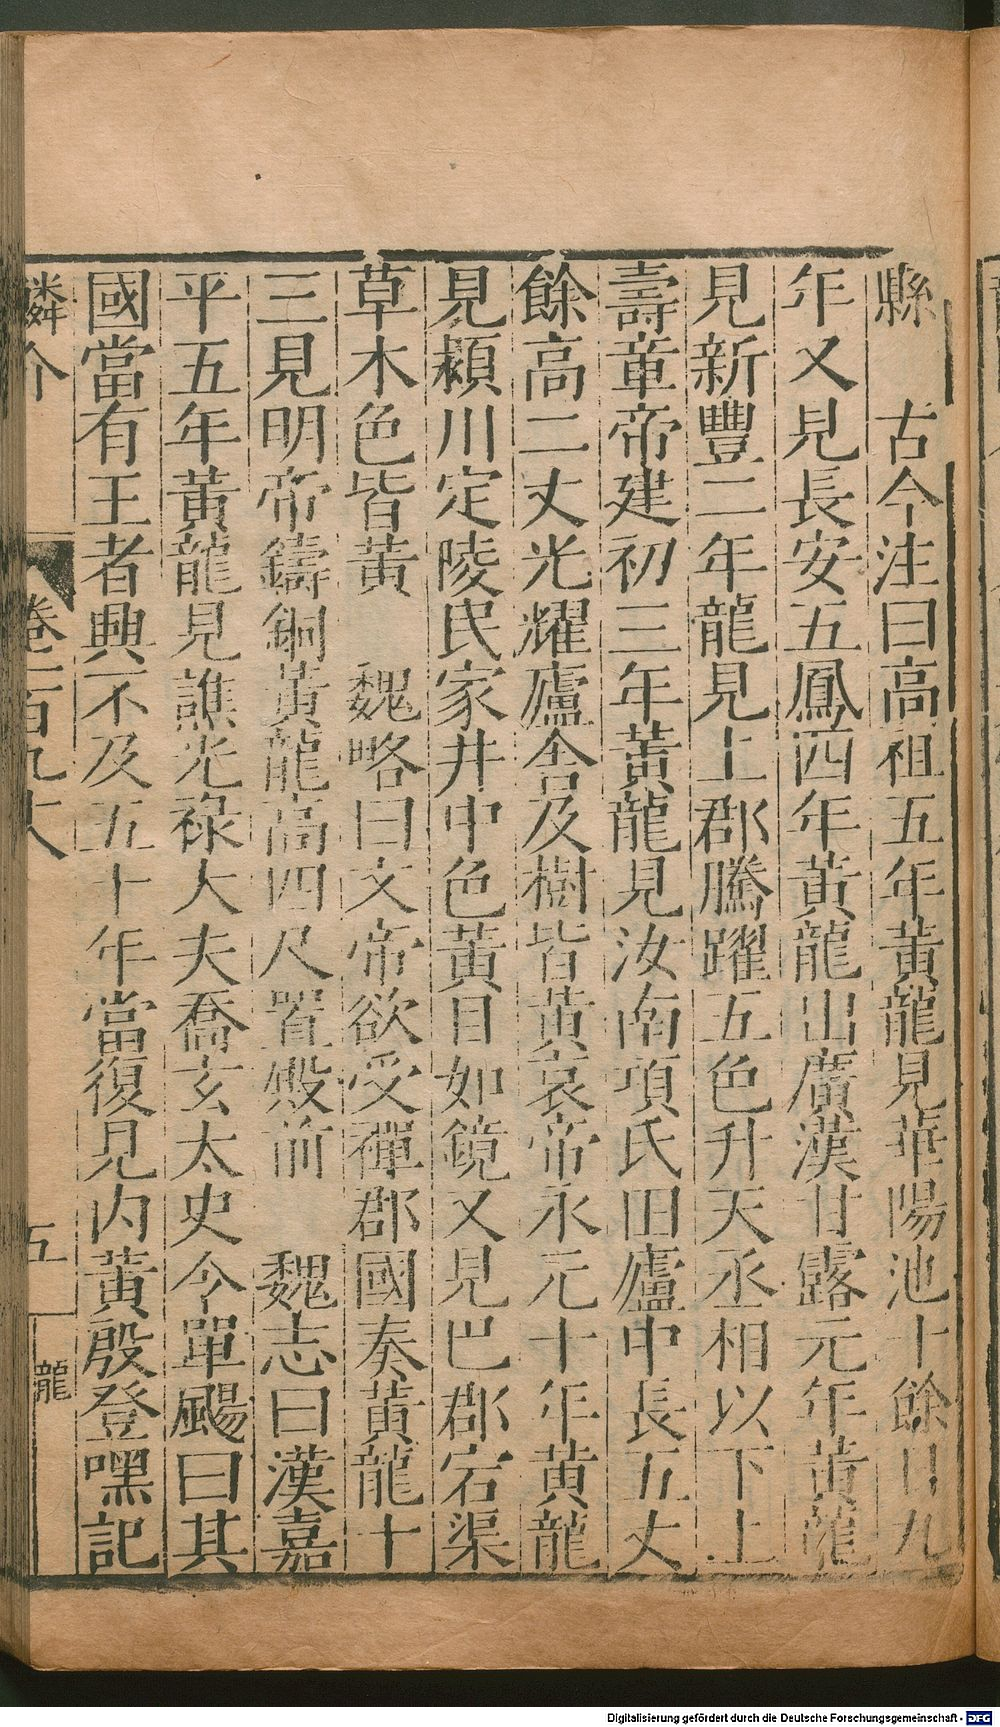 縣　古今注曰高祖五年黃龍見華陽池十餘日九
年又見長安五鳳四年黃龍出廣漢甘露元年黃龍
見新豐二年龍見上郡騰躍五色升天丞相以下上
壽章帝建初三年黃龍見汝南項氏田廬中長五丈
餘高二丈光耀廬舍及樹皆黃哀帝永元十年黃龍
見潁川定陵民家井中色黃目如鏡又見巴郡宕渠
草木色皆黃　魏略曰文帝欲受禪郡國奏黃龍十
三見明帝鑄銅黃龍高四尺置殿前　魏志曰漢嘉
平五年黃龍見譙光祿大夫喬玄太史令單颺曰其
國當有王者興不及五十年當復見内黃殷登嘿記
鱗介　卷二百九十八　五　龍
Digitalisierung gefördert durch die Deutsche Forschungsgemeinschaft - DFG